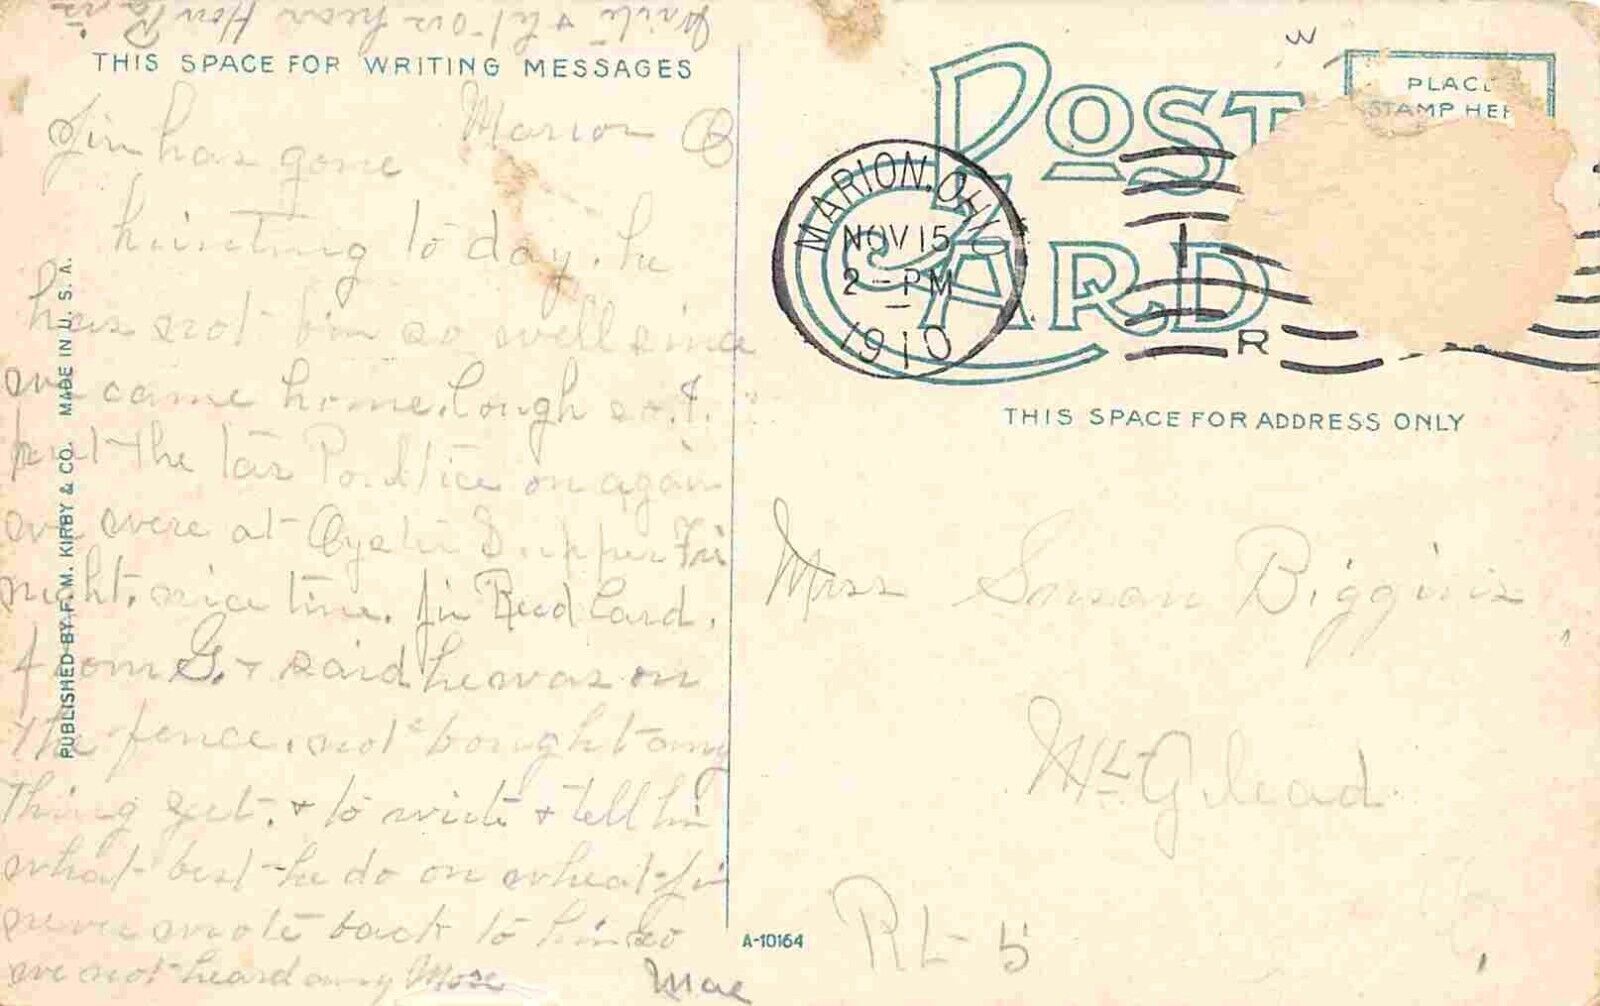 Write & let us hear How Pa is
THIS SPACE FOR WRITING MESSAGES
Marion O
Jim has gone
hunting to day. he
has not bin so well since
we came home. Cough so. I.
put the tar Poultice on again
we were at Oyster Supper Fri
night. nice time. Jim Recd Card.
from G. & said he was on
the fence. not bought any
thing yet. & to write & tell him
what best he do on wheat. Jim
never wrote back to him so
we not heard any More
Mae
PUBLISHED BY F. M. KIRBY & CO. MADE IN U. S. A.
POST CARD
PLACE
STAMP HER
MARION, OHIO
NOV 15
2 - PM
1910
R
THIS SPACE FOR ADDRESS ONLY
Mrs Susan Biggins
Mt Gilead
R 5
A-10164